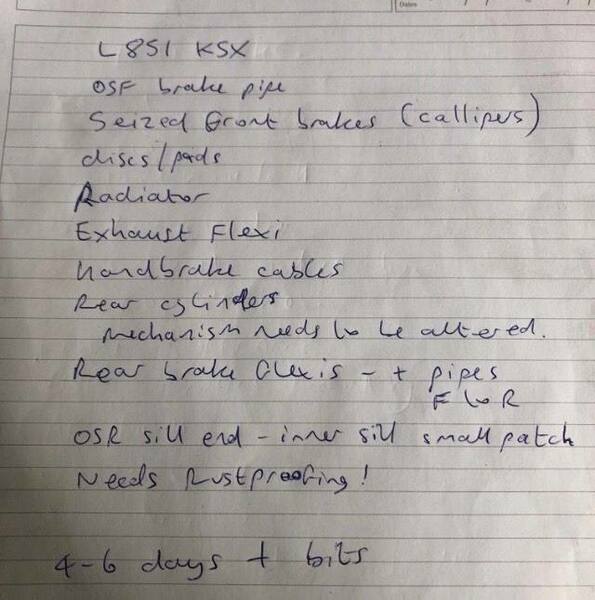 L851 KSX
OSF brake pipe
Seized front brakes (callipers)
discs/pads
Radiator
Exhaust Flexi
handbrake cables
Rear cylinders
mechanism needs to be altered.
Rear brake flexis - + pipes
F to R
OSR sill end - inner sill small patch
Needs Rustproofing!
4-6 days + bits